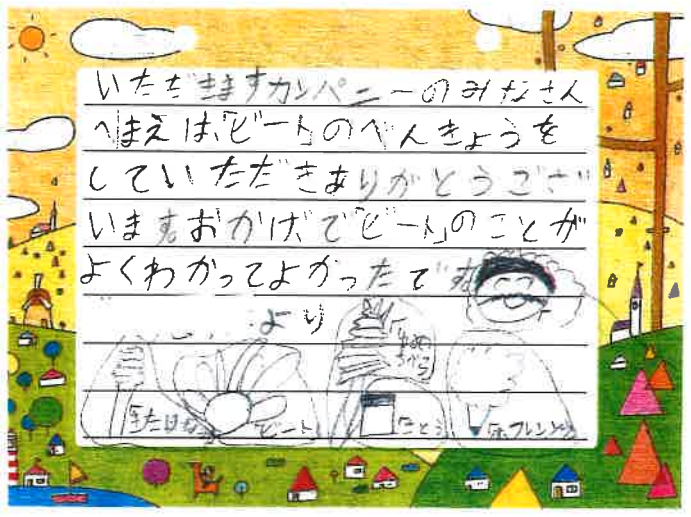 いただきますカンパニーのみなさん
へまえは、「ビート」のべんきょうを
していただきありがとうござ
います。おかげで「ビート」のことが
よくわかってよかったです
より
ビート
さとう